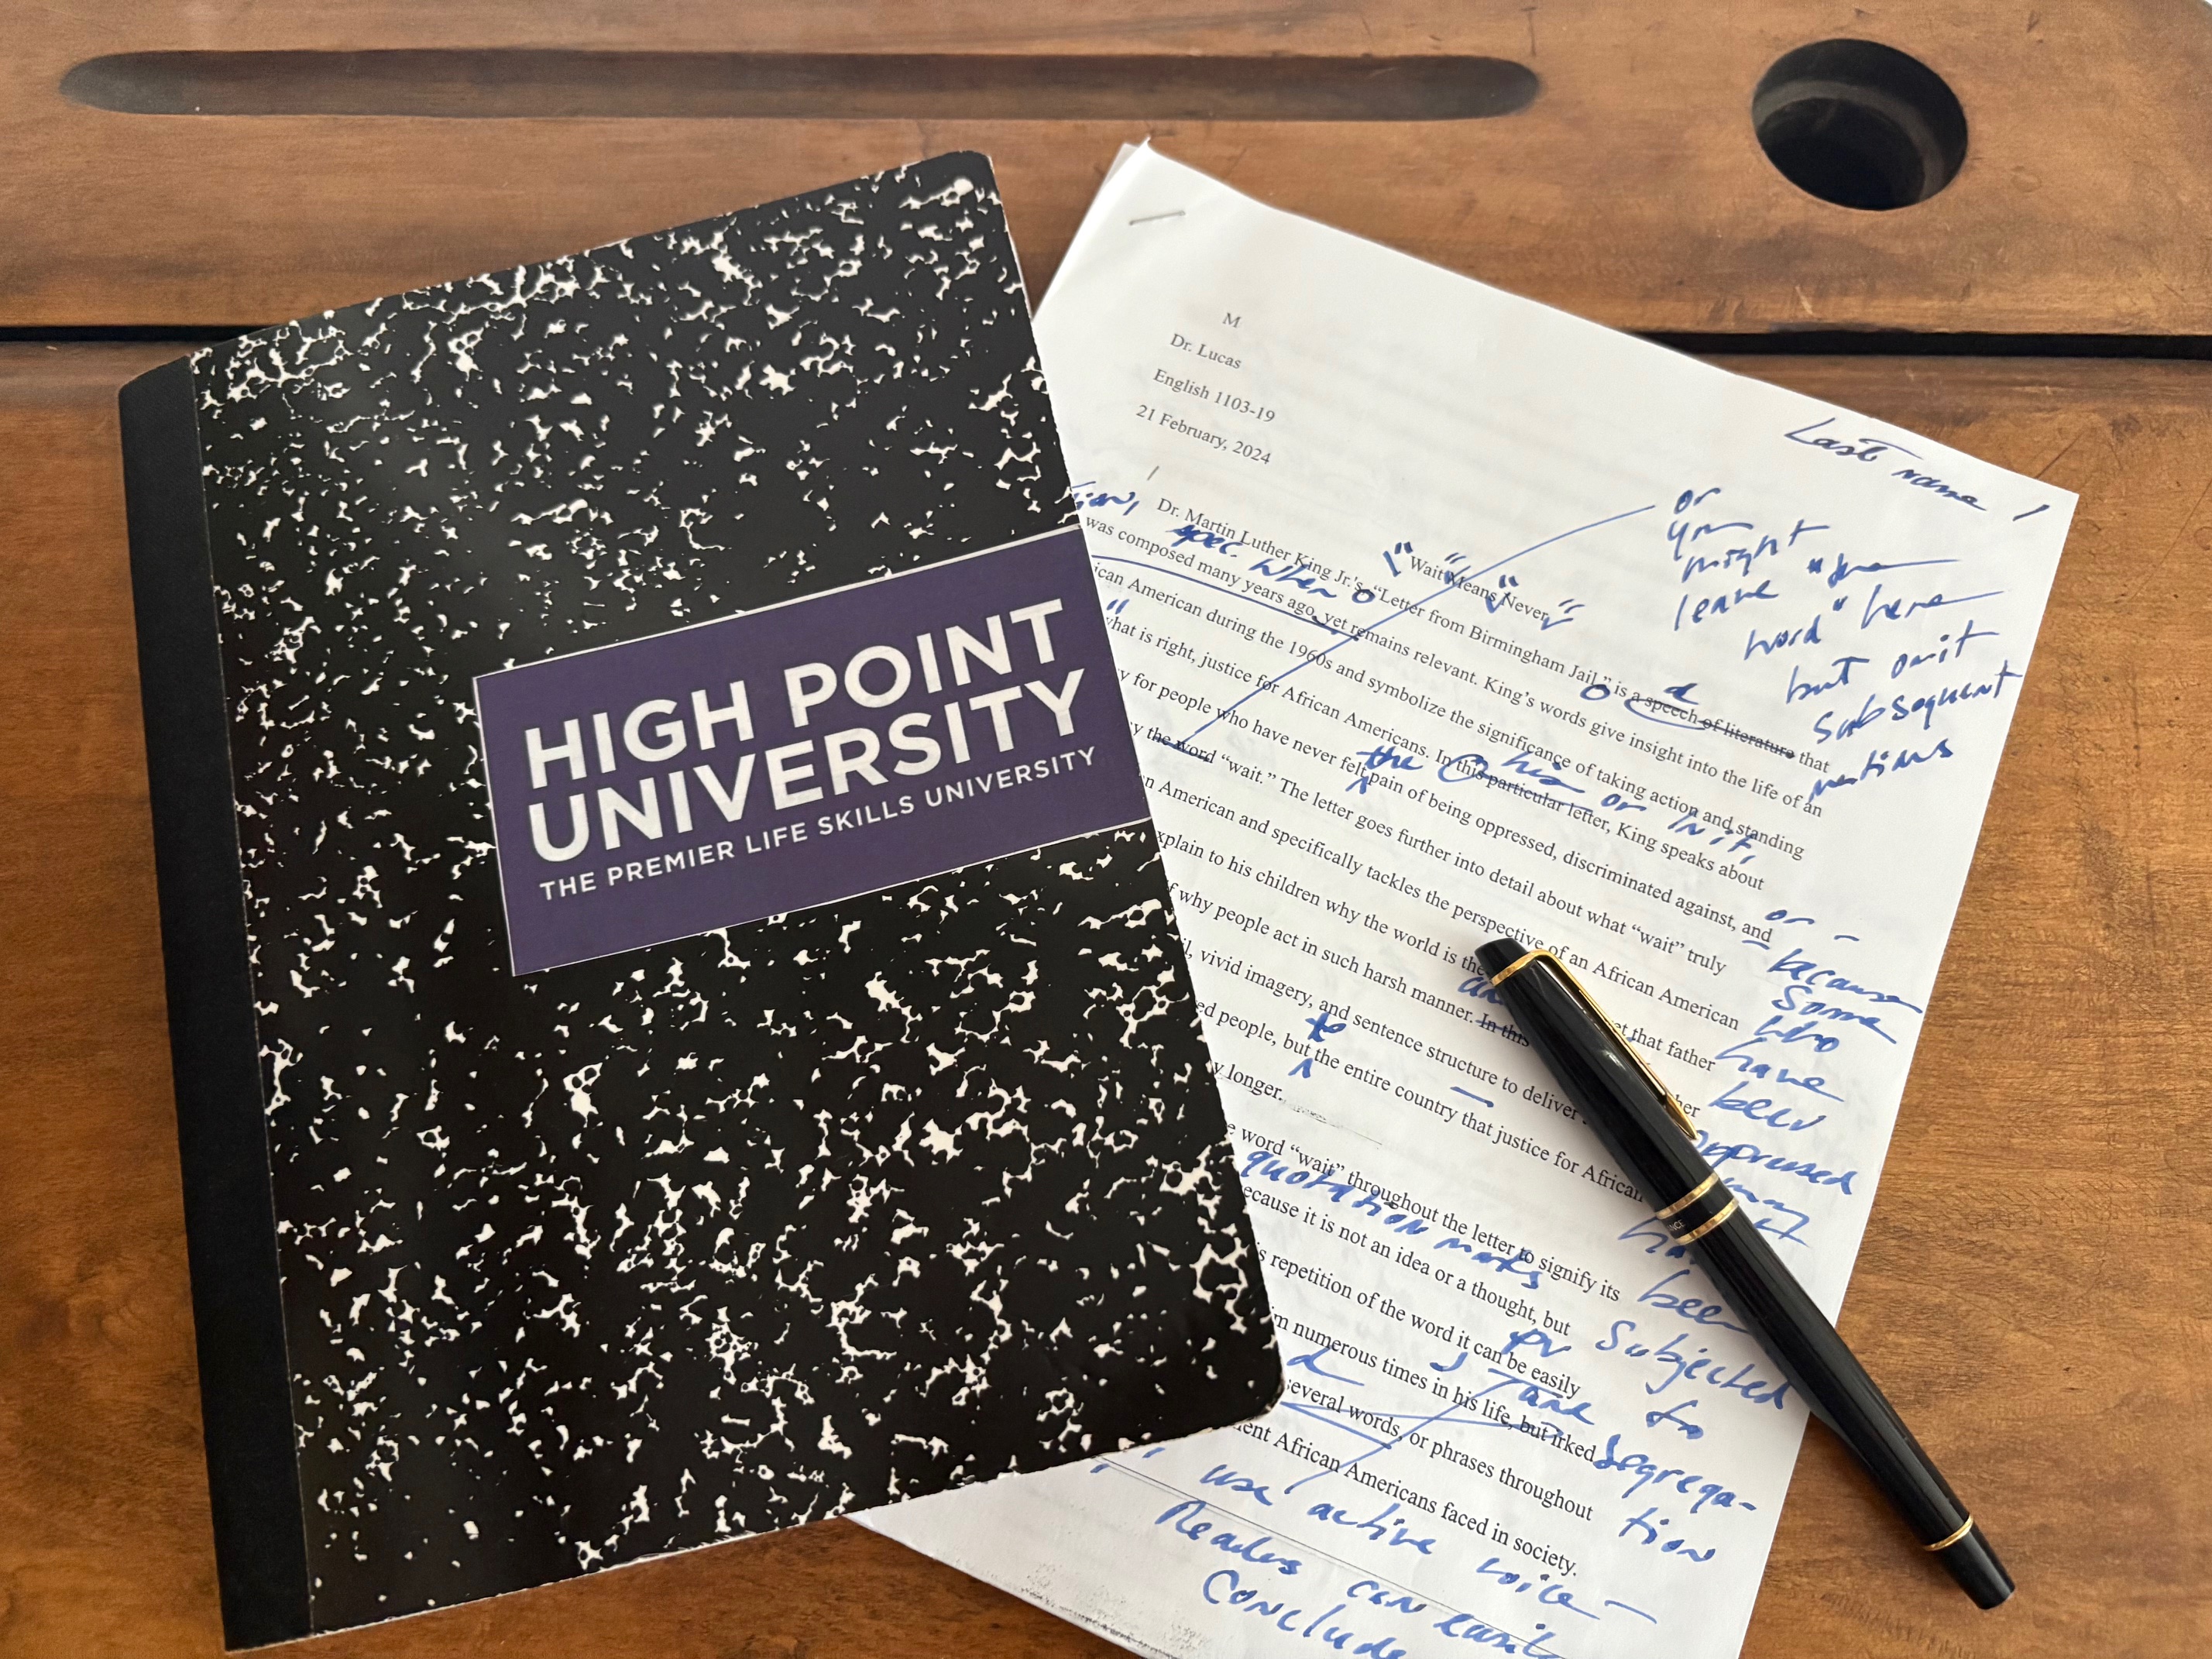 HIGH POINT
UNIVERSITY
THE PREMIER LIFE SKILLS UNIVERSITY
M
Dr. Lucas
English 1103-19
21 February, 2024
Last name 1
"Wait Means Never"
Dr. Martin Luther King Jr.'s, "Letter from Birmingham Jail," is a speech of literature that
was composed many years ago, yet remains relevant. King's words give insight into the life of an
ican American during the 1960s and symbolize the significance of taking action and standing
what is right, justice for African Americans. In this particular letter, King speaks about
y for people who have never felt pain of being oppressed, discriminated against, and
y the word "wait." The letter goes further into detail about what "wait" truly
n American and specifically tackles the perspective of an African American
xplain to his children why the world is the
et that father
f why people act in such harsh manner. In this
her
il, vivid imagery, and sentence structure to deliver
ed people, but the entire country that justice for African
y longer.
e word "wait" throughout the letter to signify its
ecause it is not an idea or a thought, but
s repetition of the word it can be easily
m numerous times in his life, but irked
several words, or phrases throughout
ent African Americans faced in society.
tion,
spec. when
or
you
might
leave "the
word" here
but omit
subsequent
mentions
a
the
his or
In it,
or
because
some
who
have
been
oppressed
may
not
been
subjected
to
segrega-
tion
to
quotation marks
pv
use active voice
Readers can easily
conclude
NCE